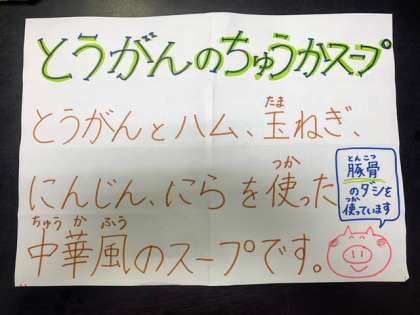 とうがんのちゅうかスープ
とうがんとハム、玉ねぎ、
たま
にんじん、にらを使った
つか
中華風のスープです。
ちゅうかふう
豚骨
とんこつ
のダシを
使っています
つか